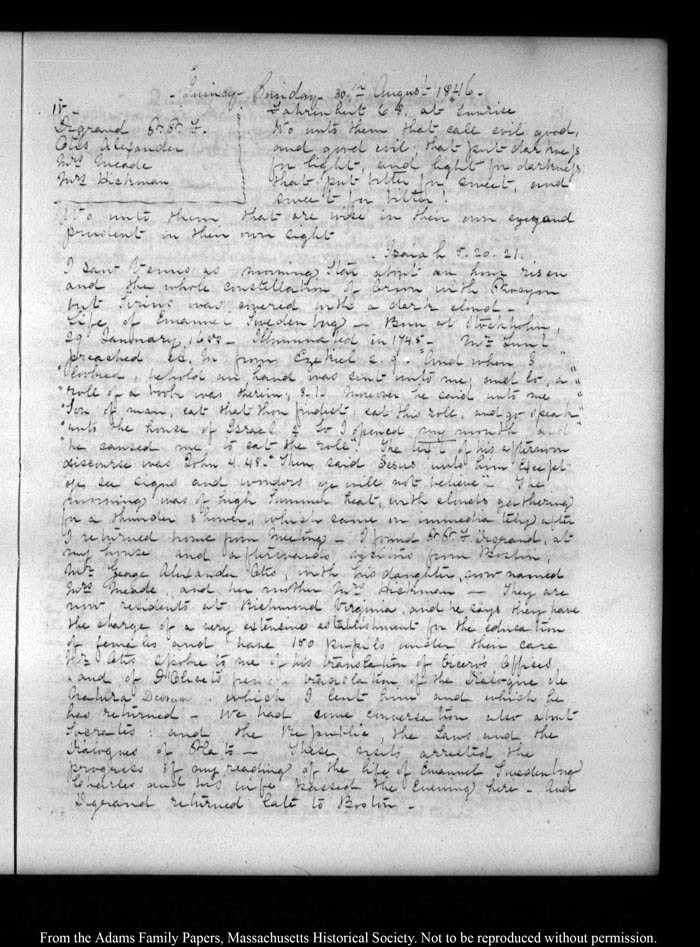 Quincy Sunday 30. August 1846.
IV
Fahrenheit 68. at sunrise
Degrand P. P. F.
Wo unto them that call evil good,
Otis Alexander
and good evil; that put darkness
Mrs Meade
for light, and light for darkness,
Mrs Hickman
that put bitter for sweet, and
sweet for bitter!
Wo unto them that are wise in their own eyes and
prudent in their own sight
Isaiah 5. 20. 21.
I saw Venus as morning Star about an hour risen
and the whole constellation of Orion with Procyon
but Sirius was covered with a dark cloud –
Life of Emanuel Swedenborg – Born at Stockholm,
29 January, 1688 – Illuminated in 1745 – Mr Lunt
preached from Ezekiel 2. 9. "And when I "
"looked, behold an hand was sent unto me; and lo, a "
"role of a book was therein; 3. 1. Moreover he said unto me "
"Son of man, eat that thou findest: eat this role, and go speak "
"unto the house of Israel 2 So I opened my mouth and "
"he caused me to eat the role". The text of his afternoon
discourse was John 4. 48. "Then said Jesus unto him Except
ye see signs and wonders ye will not believe" – The
morning was of high Summer heat, with clouds gathering
for a thunder shower, which came on immediately after
I returned home from Meeting – I found P. P. F. Degrand, at
my house and afterwards visitors from Boston,
Mr George Alexander Otis, with his daughter, now named
Mrs Meade, and her mother Mrs Hickman – They are
now residents at Richmond Virginia, and he says they have
the charge of a very extensive establishment for the education
of females and have 150 pupils under their care
Mr Otis spoke to me of his translation of Cicero's Offices,
and of D'Olivet's french translation of the Dialogue de
Natura Deorum, which I lent him and which he
has returned – We had some conversation also about
Socrates: and the Republic, the Laws and the
Dialogues of Plato – These visits arrested the
progress of my reading of the life of Emanuel Swedenborg
Charles and his wife passed the Evening here – and
Degrand returned late to Boston –
From the Adams Family Papers, Massachusetts Historical Society. Not to be reproduced without permission.